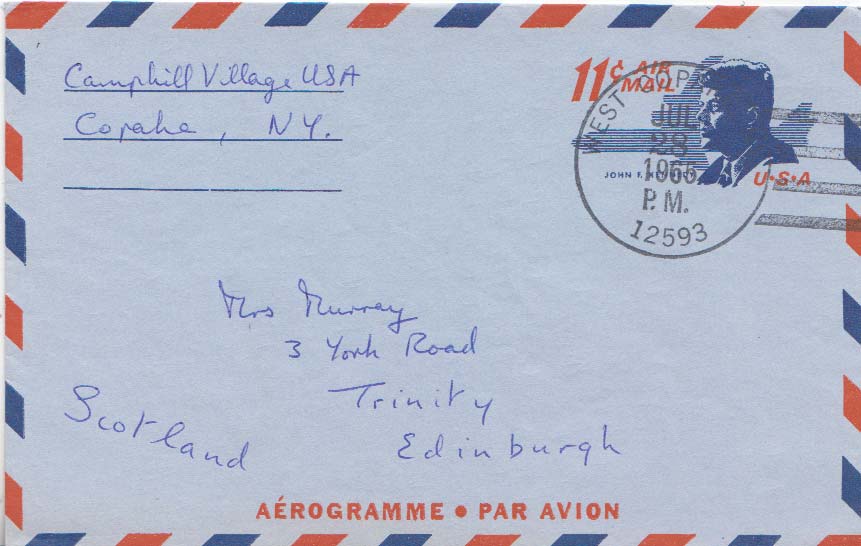 Camphill Village USA
Copake, NY.
11¢ AIR MAIL
JOHN F.
U·S·A
WEST COPA
JUL
28
1966
P.M.
12593
Mrs Murray
3 York Road
Trinity
Edinburgh
Scotland
AÉROGRAMME • PAR AVION